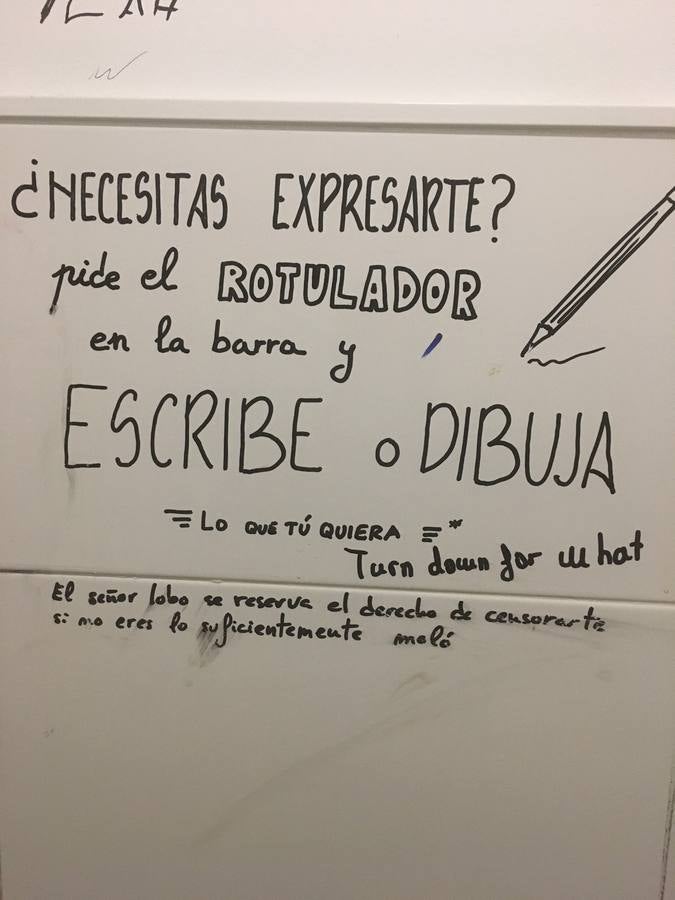 ¿NECESITAS EXPRESARTE?
pide el ROTULADOR
en la barra y
ESCRIBE o DIBUJA
LO QUE TÚ QUIERA *
Turn down for what
El señor lobo se reserva el derecho de censorarte
si no eres lo suficientemente moló